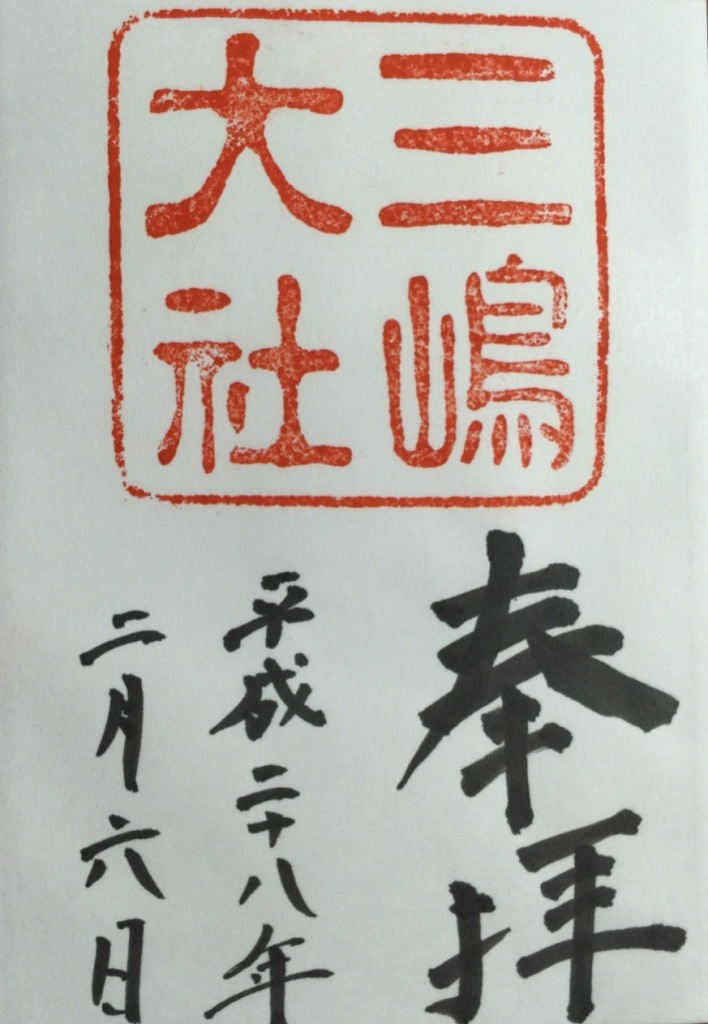 三嶋
大社
奉拝
平成二十八年
二月六日